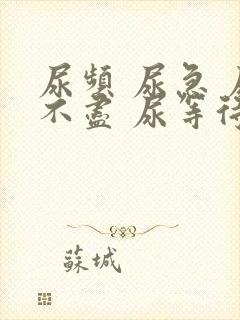 尿頻 尿急 尿
不盡 尿等待
蘇城